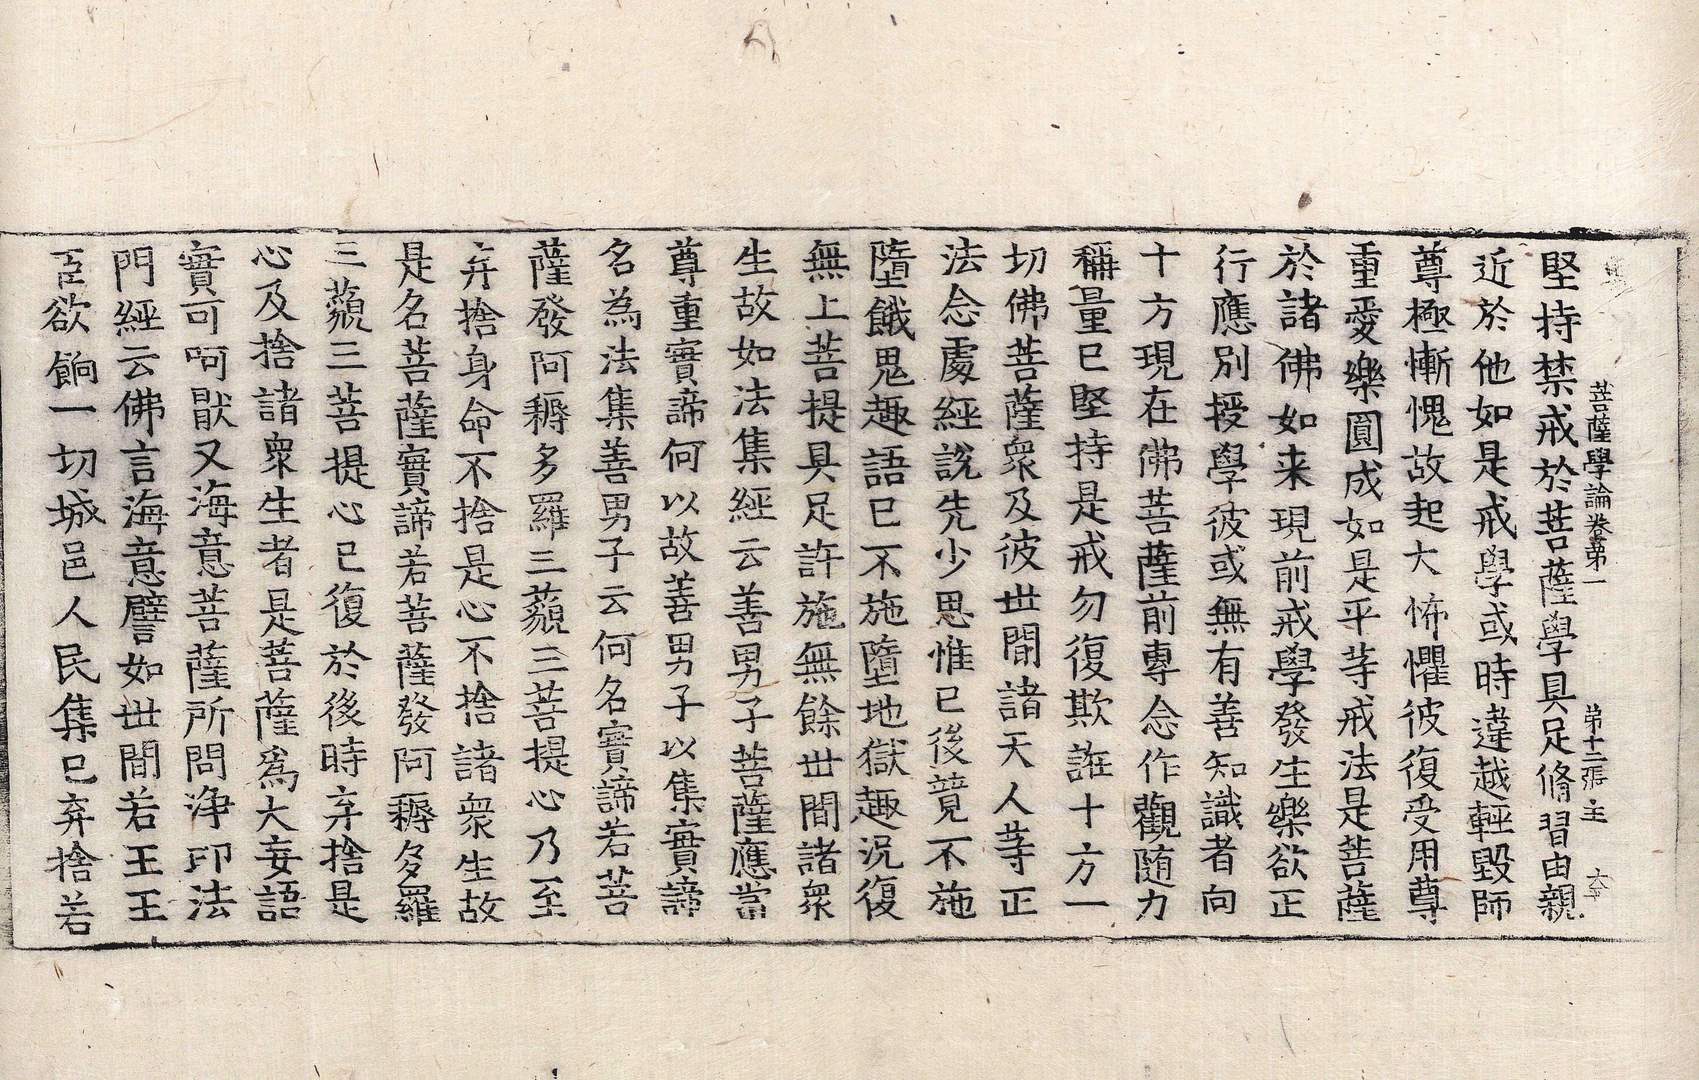 菩薩學論卷第一 第十二張 主
堅持禁戒於菩薩學具足脩習由親
近於他如是戒學或時違越輕毀師
尊極慚愧故起大怖懼彼復受用尊
重愛樂圓成如是平等戒法是菩薩
於諸佛如来現前戒學發生樂欲正
行應別授學彼或無有善知識者向
十方現在佛菩薩前專念作觀随力
稱量已堅持是戒勿復欺誑十方一
切佛菩薩衆及彼世間諸天人等正
法念處經說先少思惟已後竟不施
墮餓鬼趣語已不施墮地獄趣况復
無上菩提具足許施無餘世間諸衆
生故如法集經云善男子菩薩應當
尊重實諦何以故善男子以集實諦
名為法集善男子云何名實諦若菩
薩發阿耨多羅三藐三菩提心乃至
弃捨身命不捨是心不捨諸衆生故
是名菩薩實諦若菩薩發阿耨多羅
三藐三菩提心已復於後時弃捨是
心及捨諸衆生者是菩薩爲大妄語
實可呵厭又海意菩薩所問淨印法
門經云佛言海意譬如世間若王王
臣欲餉一切城邑人民集已弃捨若